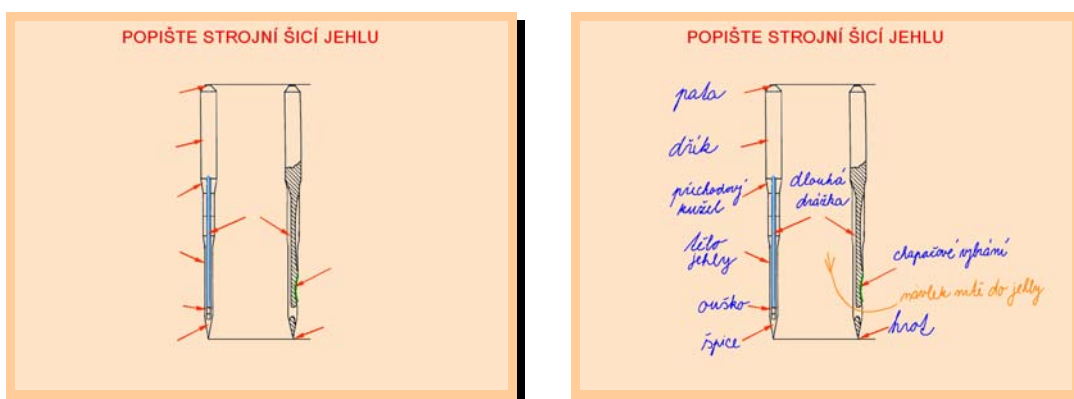 POPIŠTE STROJNÍ ŠICÍ JEHLU
POPIŠTE STROJNÍ ŠICÍ JEHLU
pata
dřík
přechodový
kužel
dlouhá
drážka
tělo
jehly
chapačové vybrání
návlek nitě do jehly
ouško
hrot
špice